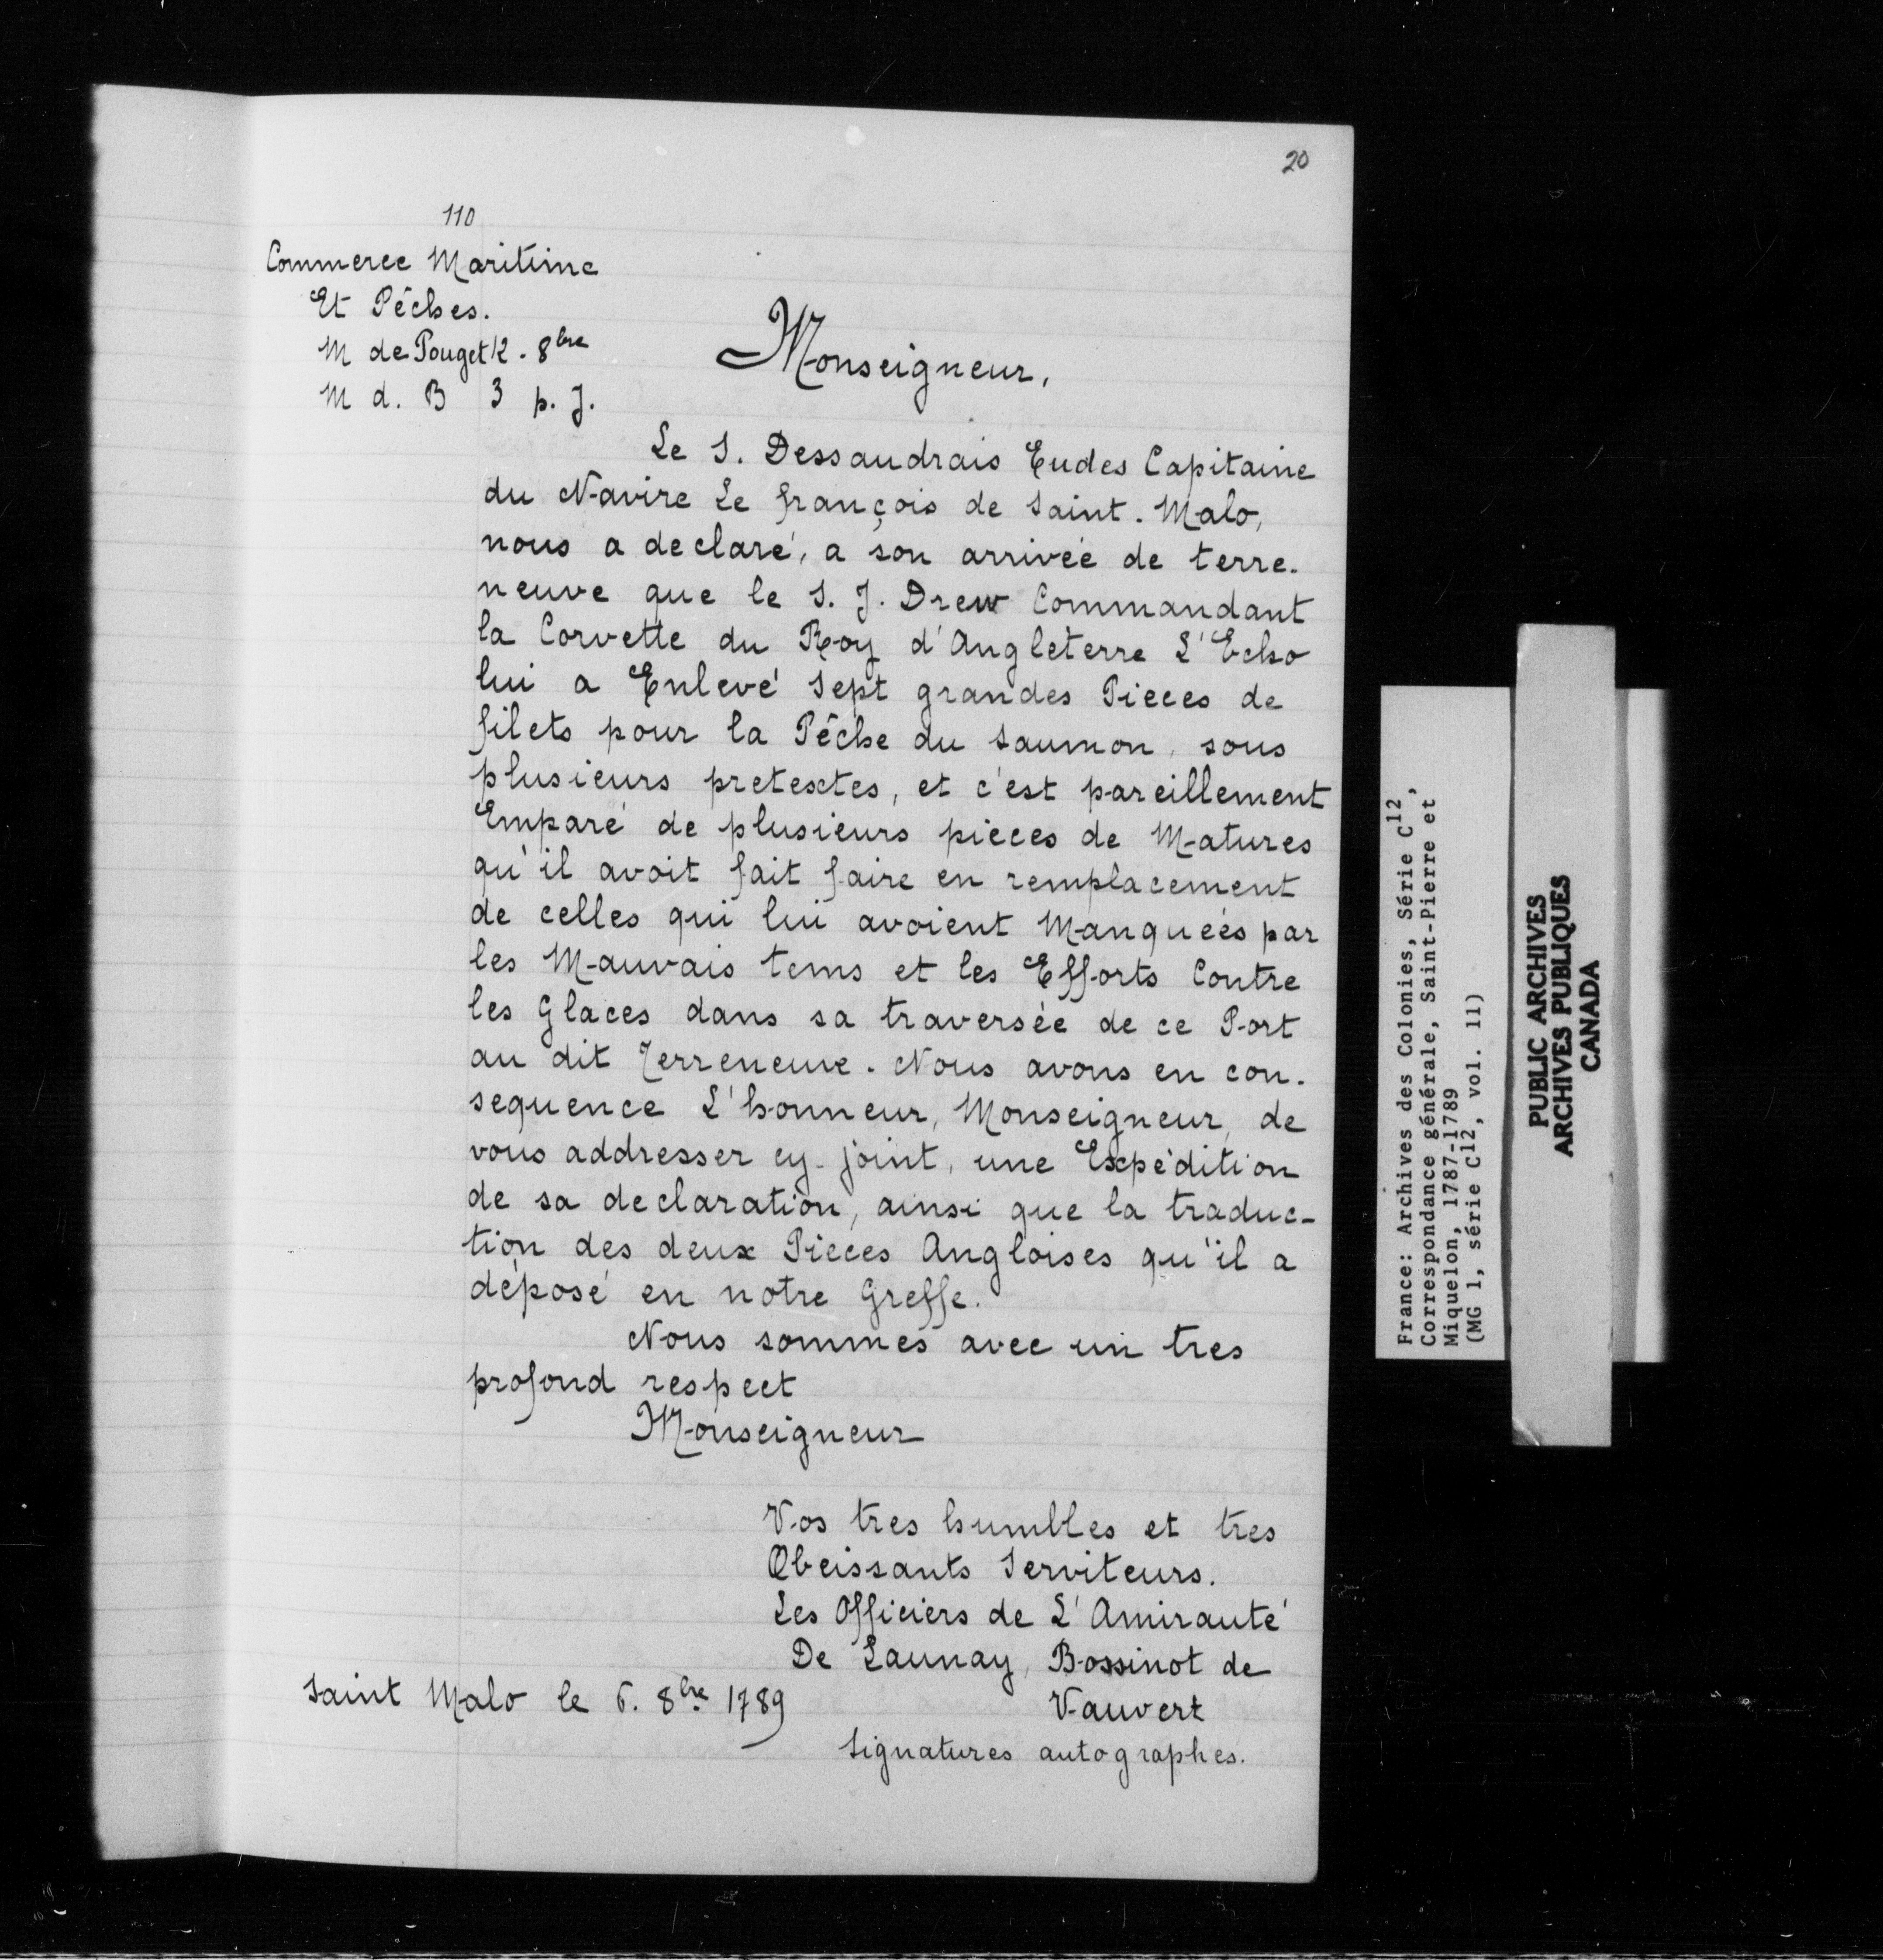 20
110
Commerce Maritime
Et Pêches.
M de Pouget 12. 8bre
M d. B 3 p. J.
Monseigneur,
Le S. Dessaudrais Eudes Capitaine
du Navire Le françois de Saint. Malo,
nous a declaré, a son arrivée de terre.
neuve que le S. J. Drew Commandant
la Corvette du Roy d'Angleterre L'Echo
lui a Enlevé Sept grandes Pieces de
filets pour la Pêche du Saumon, sous
plusieurs pretextes, et c'est pareillement
Emparé de plusieurs pièces de Matures
qu'il avoit fait faire en remplacement
de celles qui lui avoient Manquées par
les Mauvais tems et les Efforts Contre
les Glaces dans sa traversée de ce Port
au dit Terreneuve. Nous avons en con.
sequence L'honneur, Monseigneur, de
vous addresser cy-joint, une Expédition
de sa declaration, ainsi que la traduc-
tion des deux Pieces Angloises qu'il a
déposé en notre Greffe.
Nous sommes avec un tres
profond respect
Monseigneur
Vos tres humbles et tres
Obeissants Serviteurs.
Les Officiers de L'Amirauté
De Launay, Bossinot de
Vauvert
Saint Malo le 6. 8bre 1789
Signatures autographes.
France: Archives des Colonies, Série C12,
Correspondance générale, Saint-Pierre et
Miquelon, 1787-1789
(MG 1, série C12, vol. 11)
PUBLIC ARCHIVES
ARCHIVES PUBLIQUES
CANADA